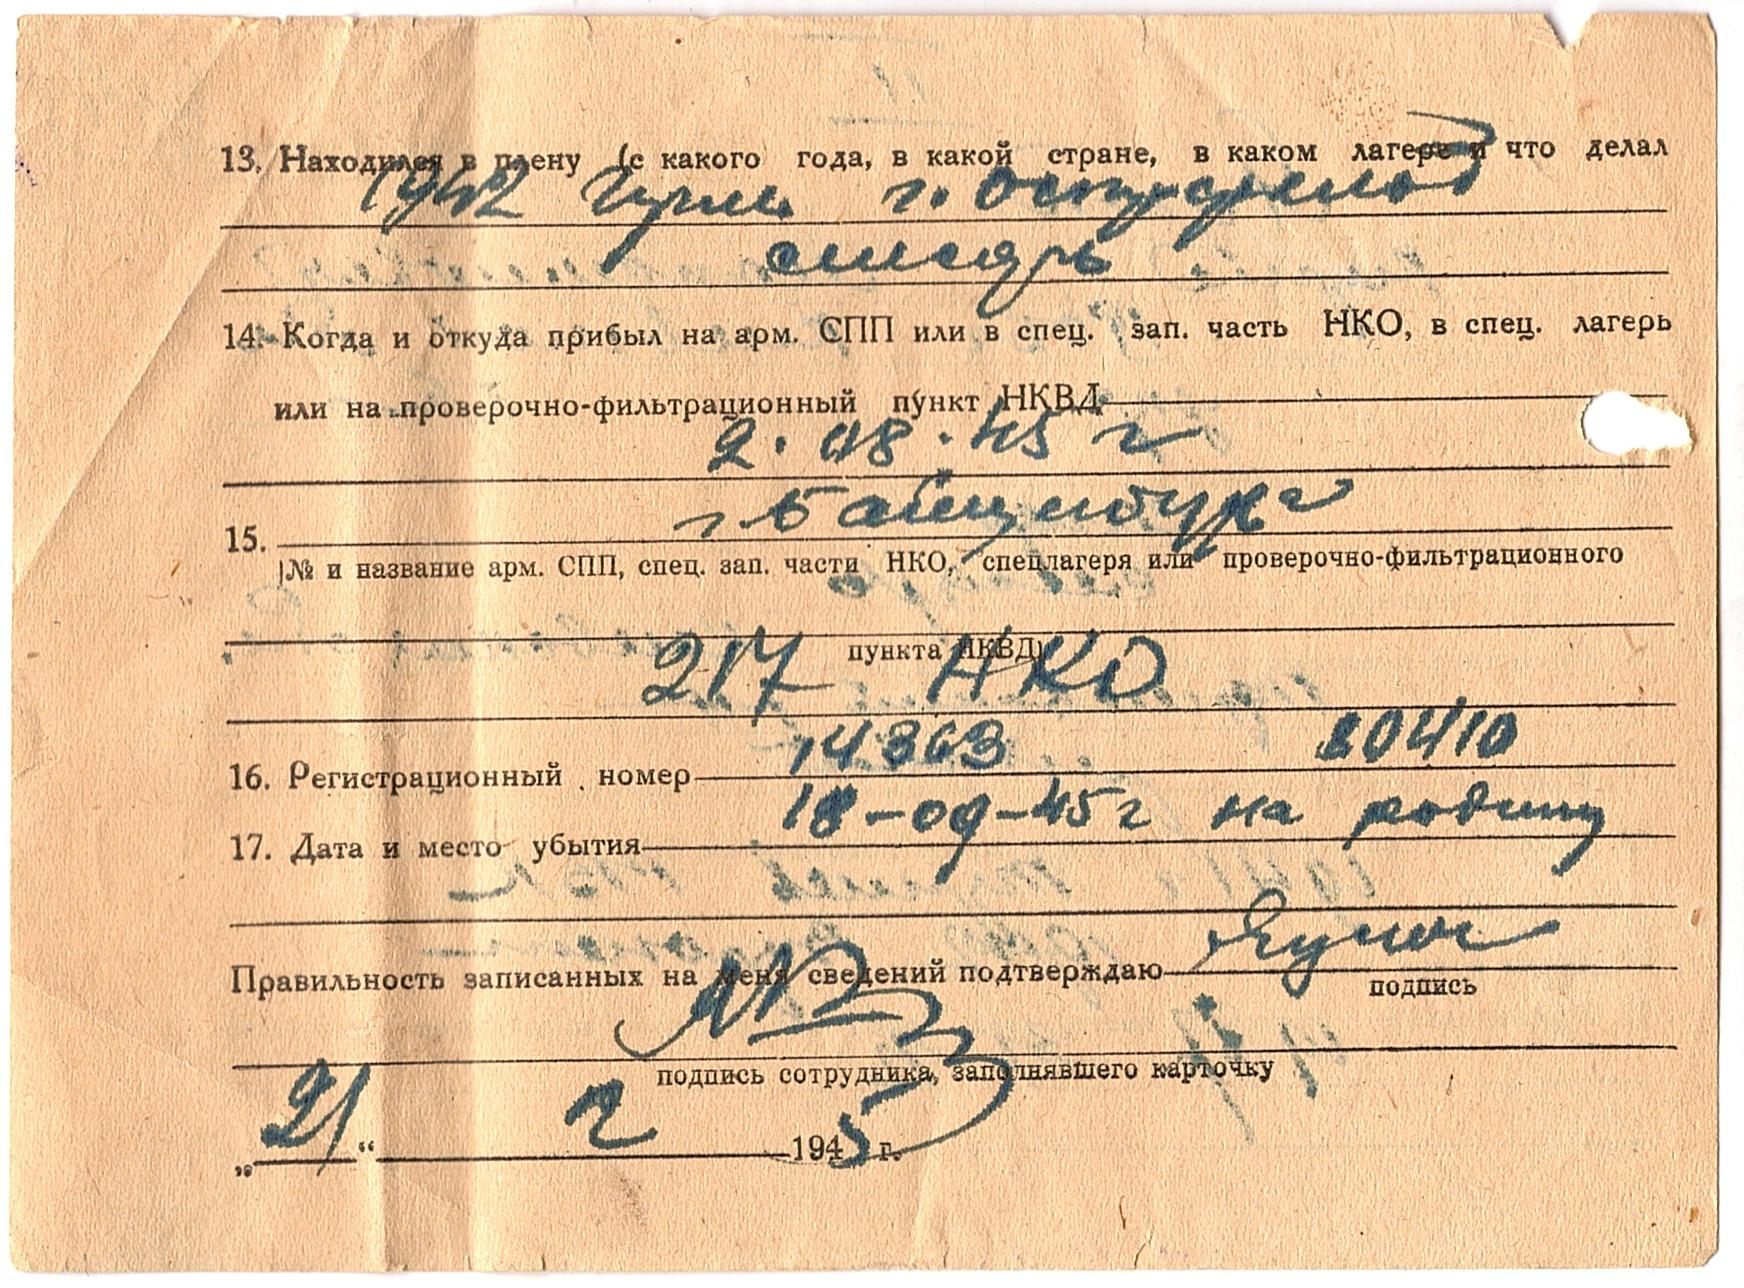 13. Находился в плену (с какого года, в какой стране, в каком лагере и что делал
1942 г.
слесарь
14. Когда и откуда прибыл на арм. СПП или в спец. зап. часть НКО, в спец. лагерь
или на проверочно-фильтрационный пункт НКВД
2.08.45 г
15. г.
(№ и название арм. СПП, спец. зап. части НКО, спецлагеря или проверочно-фильтрационного
пункта НКВД)
217 НКО
16. Регистрационный номер 14363 80410
17. Дата и место убытия 18-09-45 г на родину
Правильность записанных на меня сведений подтверждаю
подпись
подпись сотрудника, заполнявшего карточку
„21“ 1945 г.